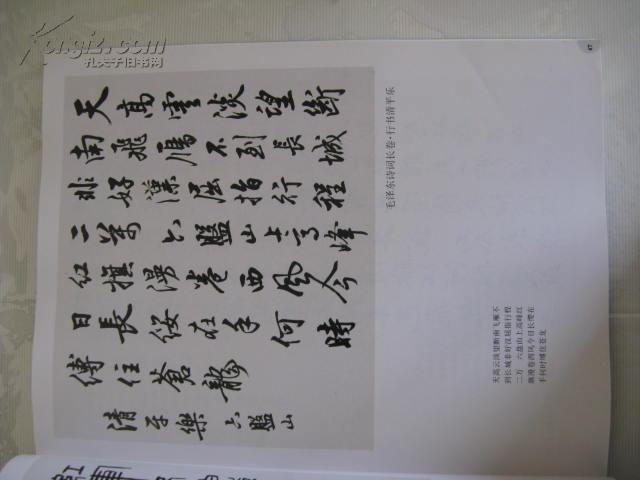 天高雲淡望斷
南飛雁不到長城
非好漢屈指行程
二萬六盤山上高峰
紅旗漫卷西風今
日長纓在手何時
縛住蒼龍
清平樂 六盤山
毛泽东诗词长卷·行书清平乐
天高云淡望断南飞雁不
到长城非好汉屈指行程
二万 六盘山上高峰红
旗漫卷西风今日长缨在
手何时缚住苍龙
47
Kongfz.com
孔夫子旧书网